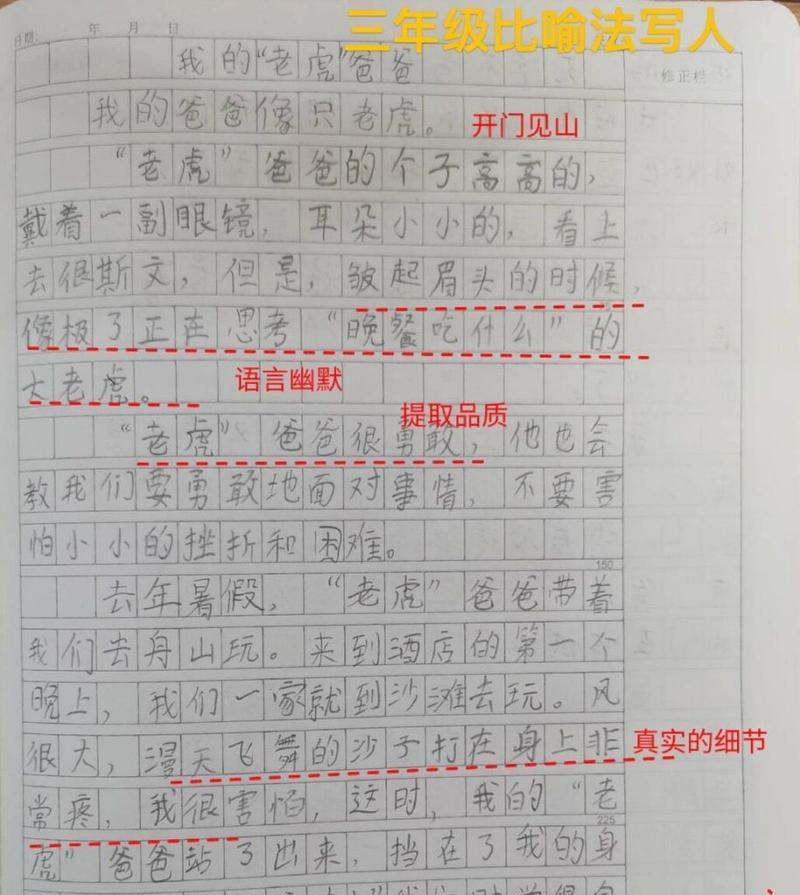 三年级比喻法写人
日期: 年 月 日
我的“老虎”爸爸
修正栏
我的爸爸像只老虎。
开门见山
“老虎”爸爸的个子高高的,
戴着一副眼镜,耳朵小小的,看上
去很斯文,但是,皱起眉头的时候,
像极了正在思考“晚餐吃什么”的
大老虎。
语言幽默
提取品质
“老虎”爸爸很勇敢,他也会
教我们要勇敢地面对事情,不要害
怕小小的挫折和困难。
150
去年暑假,“老虎”爸爸带着
我们去舟山玩。来到酒店的第一个
晚上,我们一家就到沙滩去玩。风
很大,漫天飞舞的沙子打在身上非
真实的细节
常疼,我很害怕,这时,我的“老
225
虎”爸爸站了出来,挡在了我的身